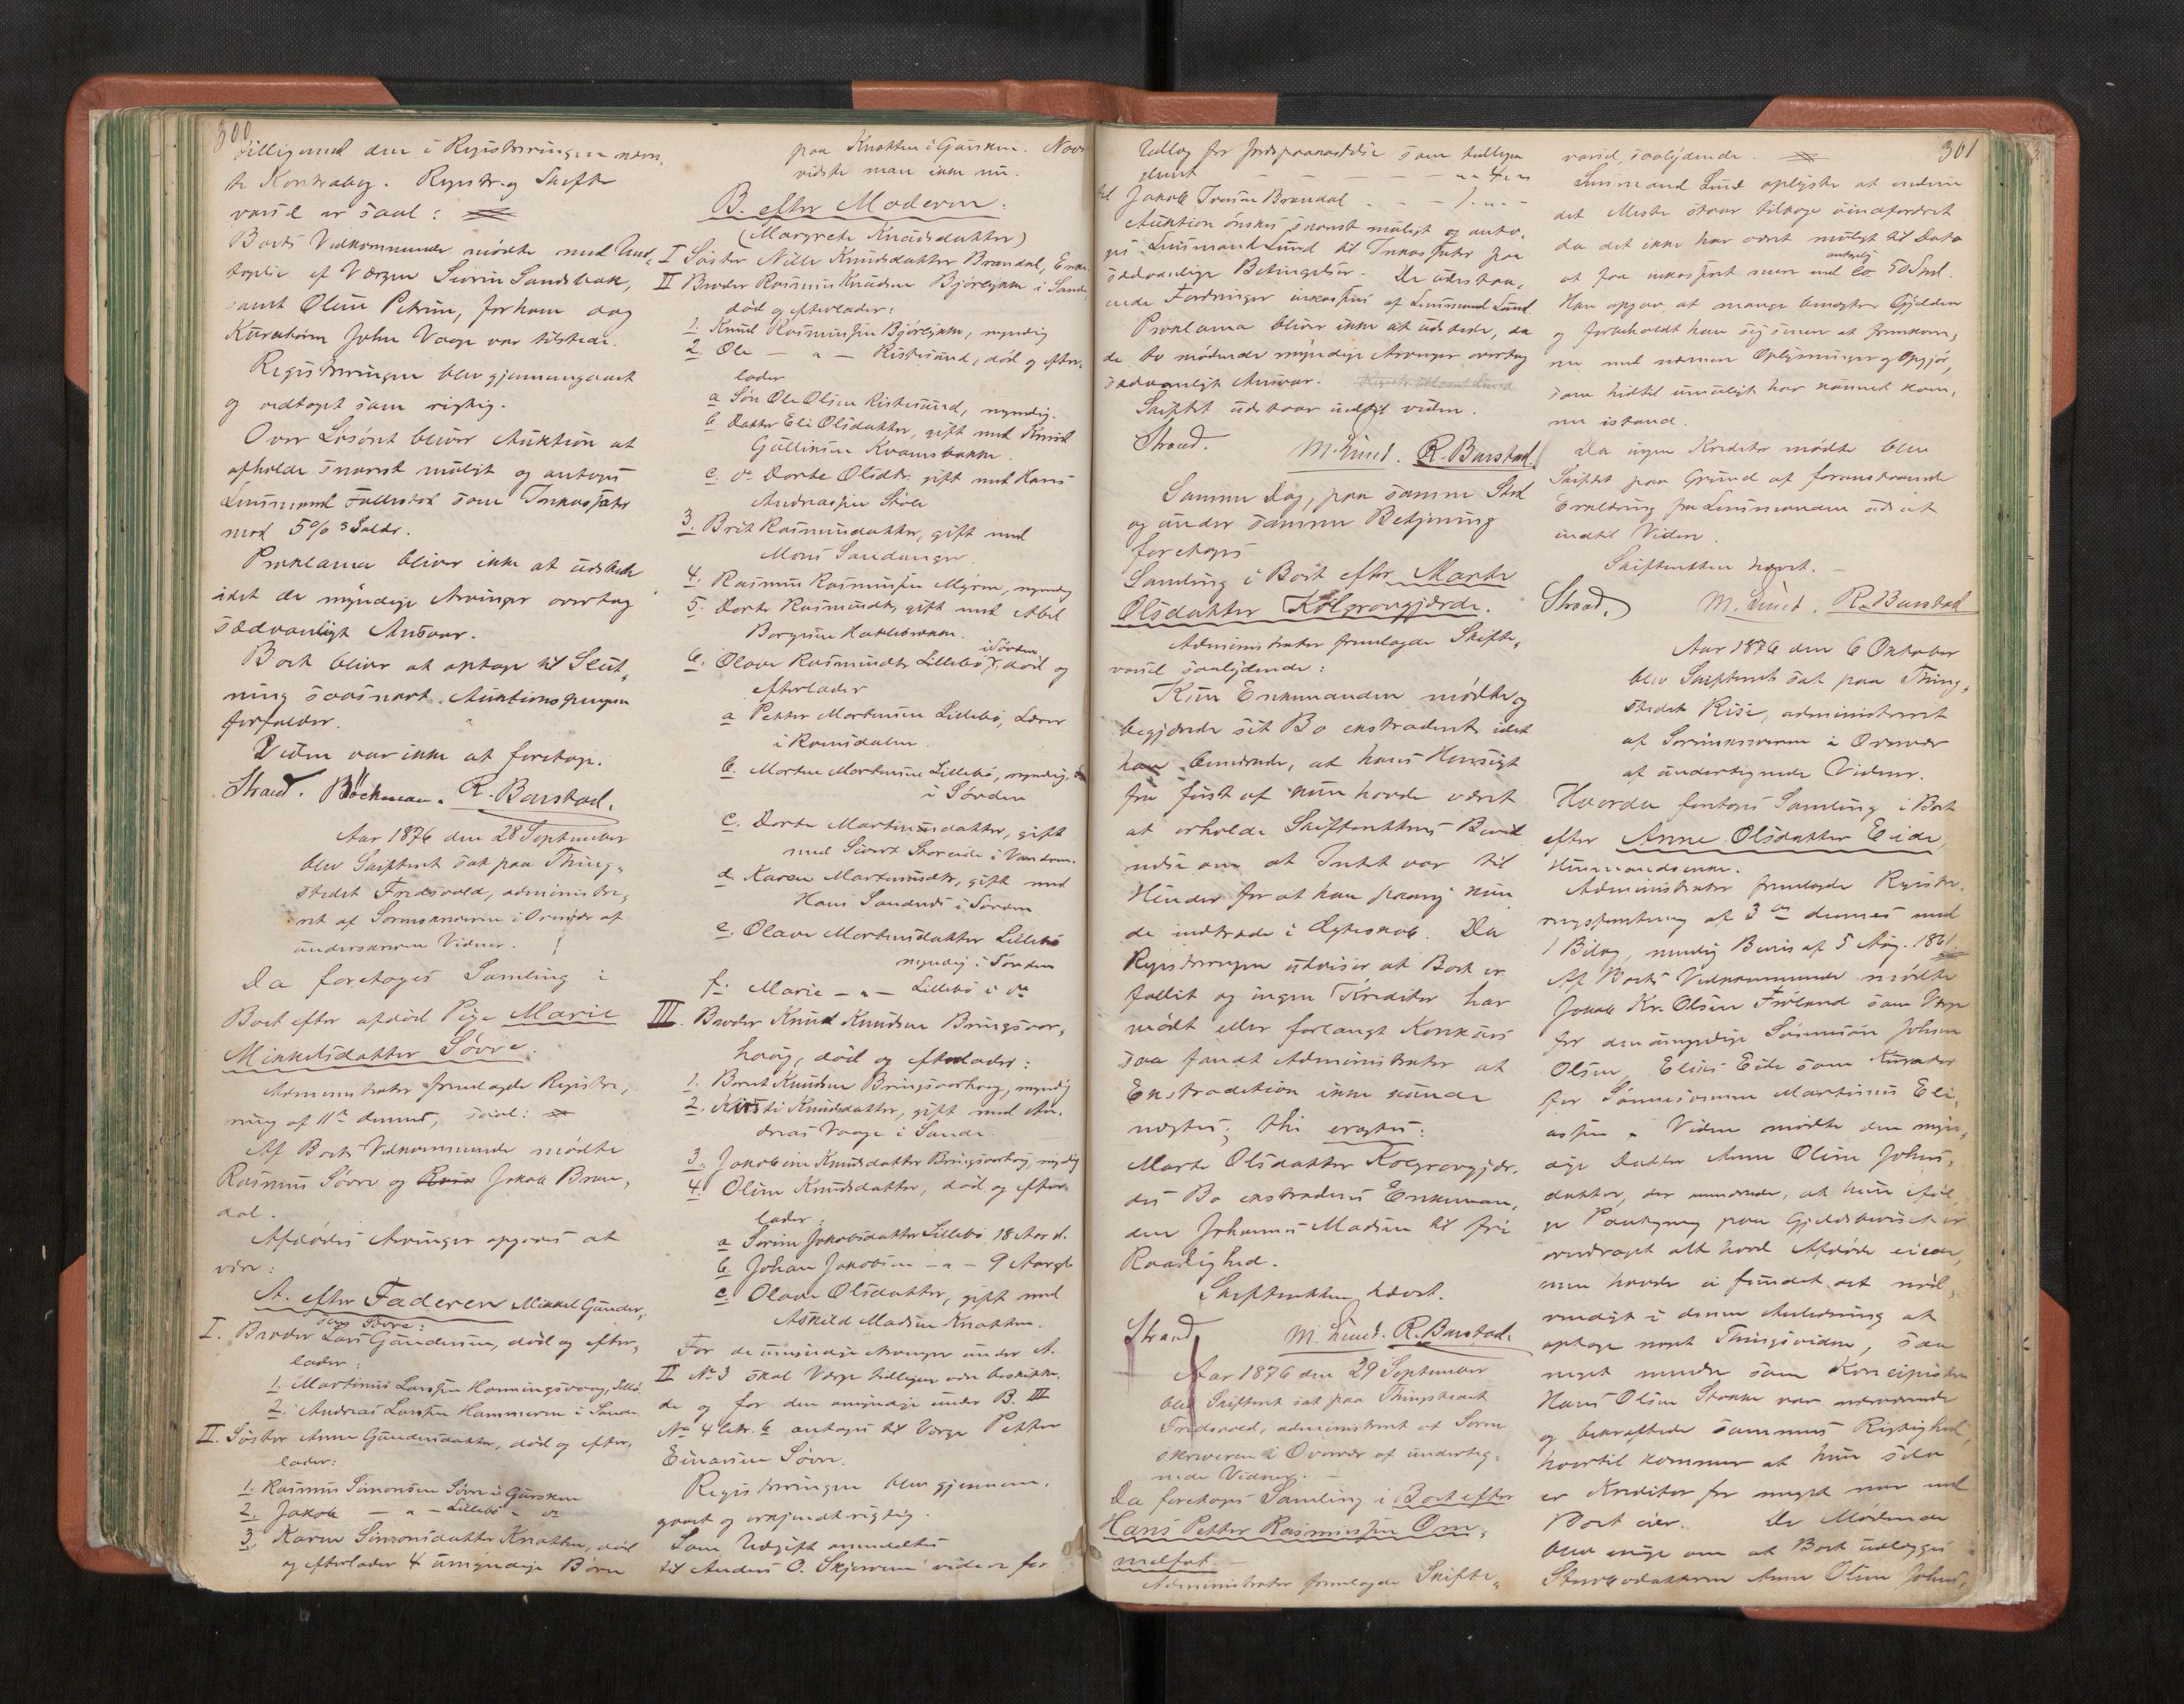 300
tilligemed den i Registreringen nævn-
te Kontrabog. Registr. og Skifte
varsel er saal:
Boets Vedkommende mødte med Und-
tagelse af Værgen Sevrin Sandsbak,
samt Oline Petrine, for hvem dog
Kuratoren John Vaage var tilstede.
Registreringen blev gjennemgaaet
og vedtaget som rigtig.
Over Løsøret bliver Auktion at
afholde snarest muligt og antages
Lensmand som Inkassator
mod 5 %
Proklama bliver ikke at udstede
idet de myndige Arvinger overtog
sædvanligt Ansvar.
Boet bliver at optage til Slut-
ning saasnart Auktionspengene
forfalder.
Videre var ikke at foretage.
Strand. Böckman. R. Barstad.
Aar 1876 den 28 September
blev Skifteret sat paa Thing-
stedet Fredsvold, administre-
ret af Sorenskriveren i Overvær af
underskrevne Vidner.
Da foretoges Samling i
Boet efter afdød Pige Marie
Mikkelsdatter Søvre.
Administrator fremlagde Registre-
ring af 11te dennes, saal:
Af Boets Vedkommende mødte
Rasmus Søvre og Jakob Bran-
dal.
Afdødes Arvinger opgaves at
være:
A. efter Faderen Mikkel Gunder-
sen Søvre:
I. Broder Lars Gundersen, død og efter-
lader:
1. Martinus Larssen Hanningsvoog,
2. Andreas Larssen Hammeren i Sande
II. Søster Anne Gundersdatter, død og efter-
lader:
1. Rasmus Simonsen Søvre i Gursken
2. Jakob — " — Lillebø " do
3. Karen Simonsdatter Knotten, død
og efterlader 4 umyndige Børn
paa Knotten i Gursken. Navn
vidste man ikke nu.
B. efter Moderen:
(Margrete Knudsdatter)
I Søster Nille Knudsdatter Brandal, Enke
II Broder Rasmus Knudsen Bjørlykke i Sande,
død og efterlader:
1. Knud Rasmussen Bjørlykke, myndig
2. Ole — " — Ristesund, død og efter-
lader
a Søn Ole Olsen Ristesund, myndig.
b. Datter Eli Olsdatter, gift med Knud
Gulliksen Kvamsbakke.
c. do Dorte Olsdtr. gift med Hans
Andreassen Støle
3. Brit Rasmusdatter, gift med
Mons Sandanger.
4. Rasmus Rasmussen Myren, myndig
5. Dorte Rasmusdtr, gift med Abel
Borgesen Hatlebrekke.
6. Olave Rasmusdtr Lillebø i Søvden, død og
efterlader
a Petter Martinsen Lillebø, Lærer
i Romsdalen.
b. Morten Martinsen Lillebø, myndig,
i Søvden
c. Dorte Martinusdatter, gift
med Sivert Storeide i Vandven.
d. Karen Martinusdtr, gift med
Hans Sandnes i Søvden
e. Olave Martinusdatter Lillebø
myndig i Søvden
f. Marie — " — Lillebø i do
III. Broder Knud Knudsen Bringsvor-
haug, død og efterlader:
1. Bernt Knudsen Bringsvorhaug, myndig
2. Kirsti Knudsdatter, gift med An-
dreas Vaage i Sande.
3. Jakobine Knudsdatter Bringsvorhaug, myndig
4. Oline Knudsdatter, død og efter-
lader:
a Serine Jakobsdatter Lillebø 18 Aar gl.
b. Johan Jakobsen — " — 9 Aar gl.
c. Olave Olsdatter, gift med
Askild Madsen Knotten.
For de umyndige Arvinger under A.
II No 3 skal Værge tidligere være beskikke-
de og for den umyndige under B. III
No 4 litr. b antages til Værge Petter
Einarsen Søvre.
Registreringen blev gjennem-
gaaet og erkjendt rigtig.
Som Udgift anmeldtes
til Anders O. Skjervens videre for
301
Udlæg for Jordpaakastelse som tidligere
" 4 "
til Jakob Iversen Brandal - - - 1. " -
Auktion ønskes snarest muligt og anta-
ges Lensmand Lund til Inkassator paa
sædvanlige Betingelser. De udestaa-
ende Fordringer inkasseres af Lensmand Lund.
Proklama bliver ikke at udstede, da
de to mødende myndige Arvinger overtog
sædvanligt Ansvar.
Skiftet udstaar indtil videre.
Strand. M. Lund. R. Barstad.
Samme Dag, paa samme Sted
og under samme Betjening
foretoges
Samling i Boet efter Marte
Olsdatter Kolgrovgjærde.
Administrator fremlagde Skifte-
varsel saalydende:
Kun Enkemanden mødte og
begjærede sit Bo ekstraderet idet
han bemærkede, at hans Hensigt
fra først af kun havde været
at erholde Skifterettens Bevid-
nelse om at Intet var til
Hinder for at han paany kun-
de indtræde i Egteskab. Da
Registreringen udviser at Boet er
fallit og ingen Kreditor har
mødt eller forlangt Konkurs
saa fandt Administrator at
Ekstradition ikke kunde
negtes; thi eragtes:
Marte Olsdatter Kolgrovgjær-
des Bo ekstraderes Enkeman-
den Johannes Madsen til fri
Raadighed.
Skifteretten hævet.
Strand M. Lund. R. Barstad.
Aar 1876 den 29 September
blev Skifteret sat paa Thingstedet
Fredsvold, administreret af Soren-
skriveren i Overvær af underteg-
nede Vidner. —
Da foretoges Samling i Boet efter
Hans Petter Rasmussen Om-
melfot —
Administrator fremlagde Skifte-
varsel, saalydende.
Lensmand Lund oplyste at endnu
det Meste staar tilbage uindfordret
da det ikke har været muligt til Dato
at faa inkasseret mere end antagelig ca 50 Spd.
Han opgav, at mange benegter Gjælden
og forbeholdt han sig senere at fremkom-
me med nærmere Oplysninger og Opgjør,
som hidtil umuligt har kunnet kom-
me istand.
Da ingen Kreditor mødte blev
Skiftet paa Grund af foranstaaende
Erklæring fra Lensmanden udsat
indtil Videre.
Skifteretten hævet. —
Strand. M. Lund. R. Barstad
Aar 1876 den 6 Oktober
blev Skifteret sat paa Thing-
stedet Rise, administreret
af Sorenskriveren i Overvær
af undertegnede Vidner.
Hvorda foretoges Samling i Boet
efter Anne Olsdatter Eide,
Husmandsenke.
Administrator fremlagde Registre-
ringsforretning af 3die dennes med
1 Bilag, nemlig Bevis af 5 Aug. 1861
Af Boets Vedkommende mødte
Jakob Kr. Olsen Frøland som Værge
for den umyndige Sønnesøn Johan
Olsen, Elias Eide som Kurator
for Sønnesønnen Martinus Eli-
assen. Videre mødte den myn-
dige Datter Anne Oline Johns-
datter, der anmærkede, at hun iføl-
ge Paategning paa Gjældsbeviset er
overdraget alt hvad Afdøde eiede,
men havde ei fundet det nød-
vendigt i denne Anledning at
optage noget Thingsvidne, saa
meget mindre som Koncipisten
Hans Olsen Stokke var nærværende
og bekræftede sammes Rigtighed,
hvortil kommer at hun selv
er Kreditor for meget mer end
Boet eier. De Mødende
blev enige om at Boet udlægges
Stervbodatteren Anne Oline Johns-